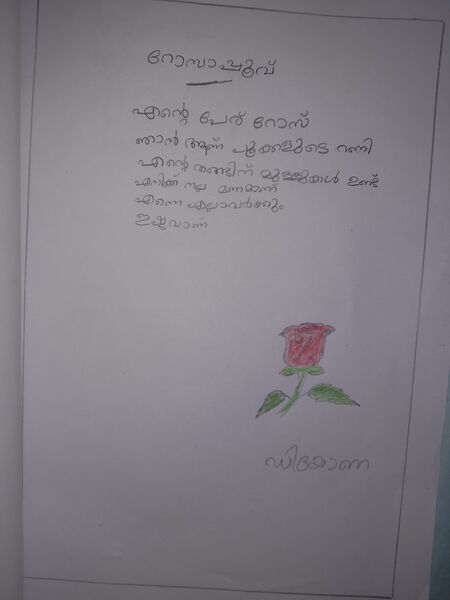 റോസാപ്പൂവ്
എന്റെ പേര് റോസ്
ഞാൻ ആണ് പൂക്കളുടെ റണി
എന്റെ തണ്ടിന് മുള്ളുകൾ ഉണ്ട്
എനിക്ക് നല്ല മണമാണ്
എന്നെ എല്ലാവർക്കും
ഇഷ്ടവാണ്